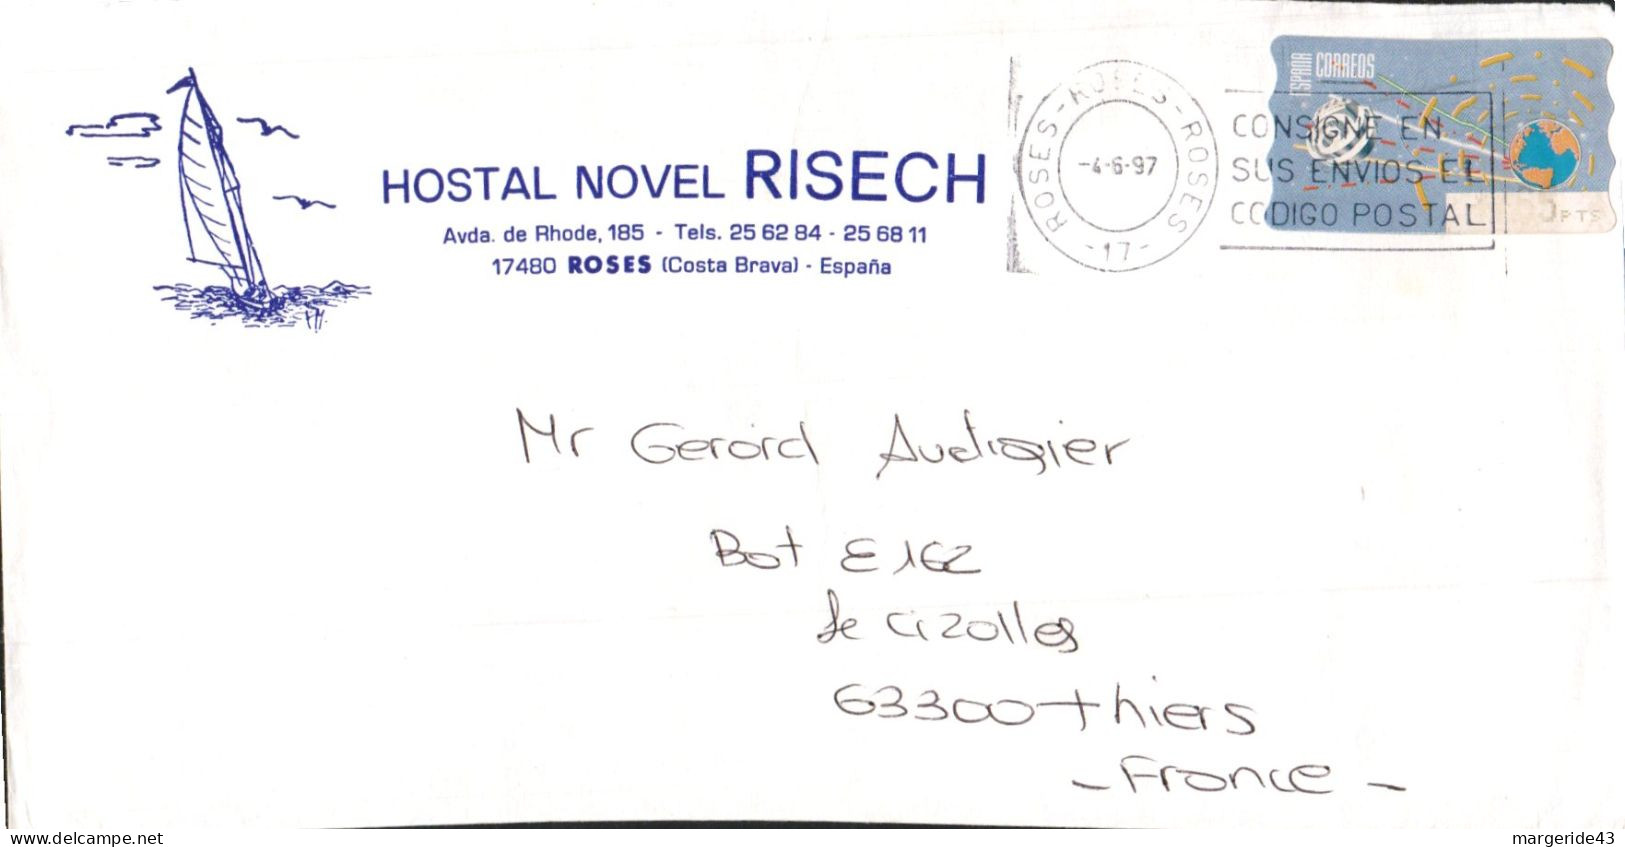 HOSTAL NOVEL RISECH
Avda. de Rhode, 185 - Tels. 25 62 84 - 25 68 11
17480 ROSES (Costa Brava) - España
ROSES - ROSES - ROSES
-4-6-97
-17-
ESPAÑA CORREOS
CONSIGNE EN
SUS ENVIOS EL
CODIGO POSTAL
PTS
Mr Gerard Audigier
Bat E 162
Le Cizolles
63300 Thiers
- France -
delcampe.net
margeride43